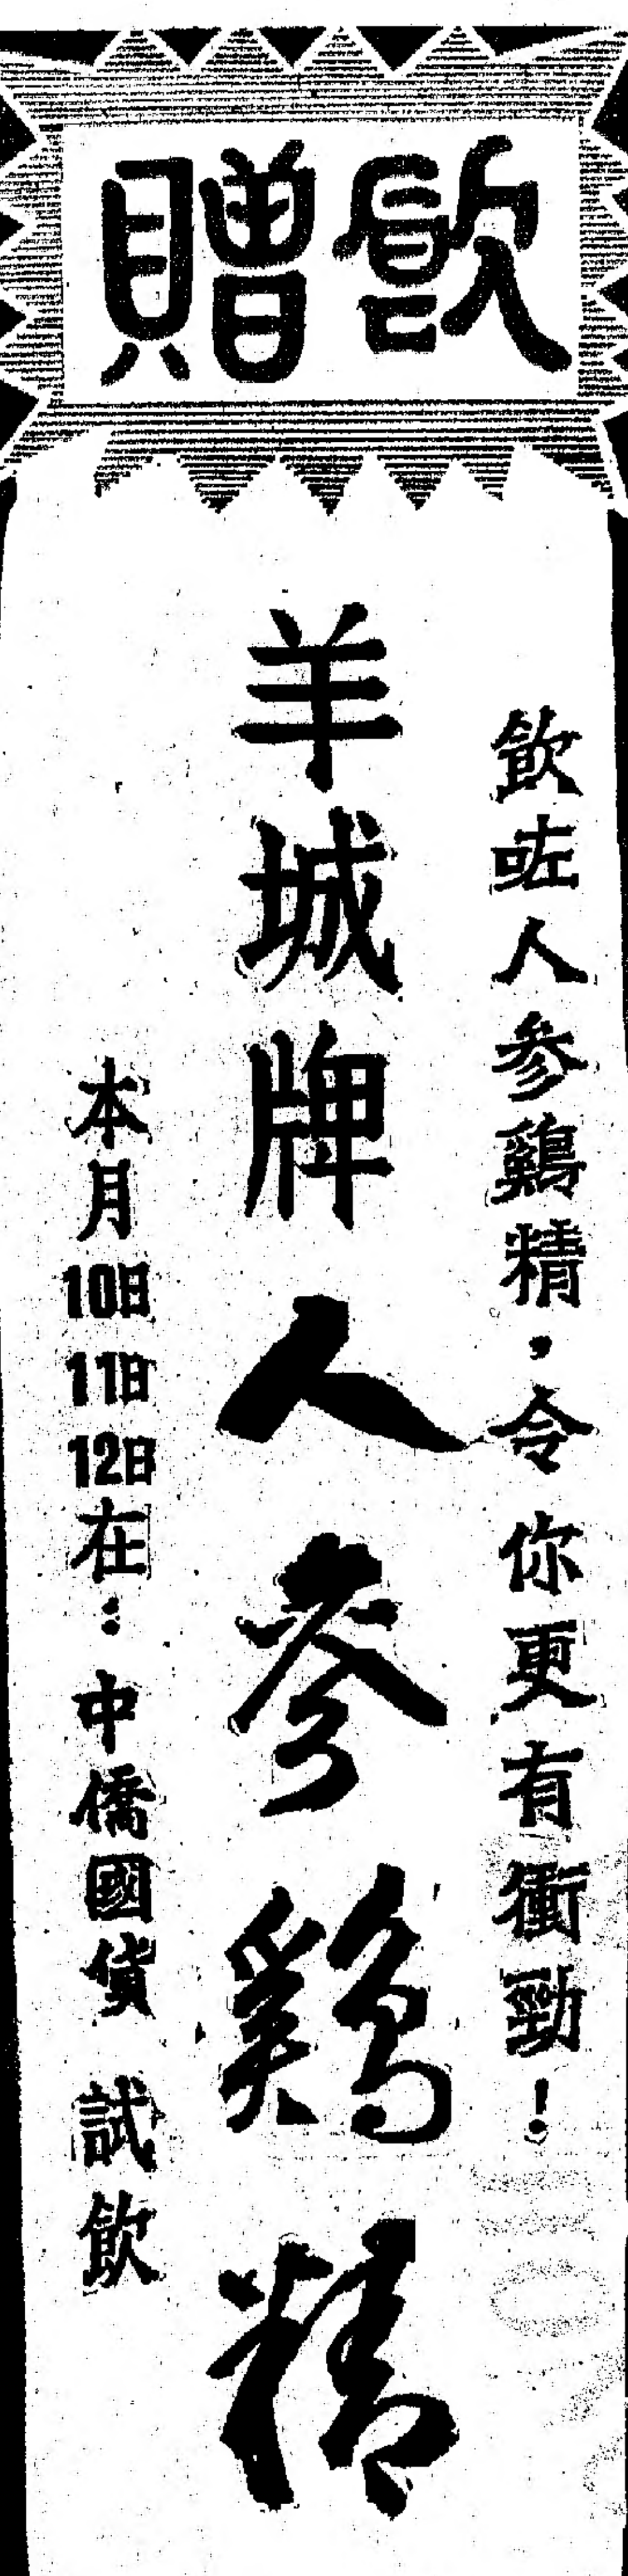 贈飲
飲咗人参鷄精，令你更有衝勁！
羊城牌人參鷄精
本月10日11日12日在：中僑國貨 試飲